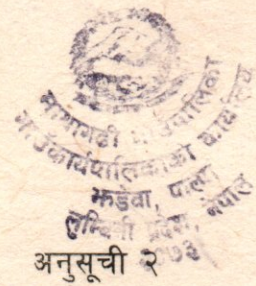 माथागढी गाउँपालिका
गाउँकार्यपालिकाको कार्यालय
झडेवा, पाल्पा
लुम्बिनी प्रदेश, नेपाल
२०७३
अनुसूची २